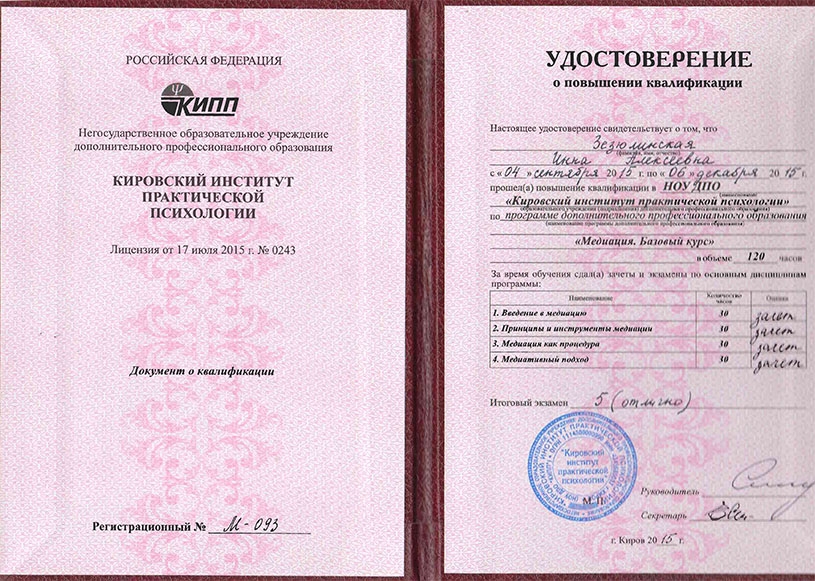 РОССИЙСКАЯ ФЕДЕРАЦИЯ
Ψ
КИПП
Негосударственное образовательное учреждение
дополнительного профессионального образования
КИРОВСКИЙ ИНСТИТУТ
ПРАКТИЧЕСКОЙ
ПСИХОЛОГИИ
Лицензия от 17 июля 2015 г. № 0243
Документ о квалификации
Регистрационный № М-093
УДОСТОВЕРЕНИЕ
о повышении квалификации
Настоящее удостоверение свидетельствует о том, что
Зезюлинская
(фамилия, имя, отчество)
Инна Алексеевна
с «04» сентября 2015 г. по «06» декабря 2015 г.
прошел(а) повышение квалификации в НОУ ДПО
(наименование)
«Кировский институт практической психологии»
образовательного учреждения (подразделения) дополнительного профессионального образования)
по программе дополнительного профессионального образования
(наименование программы дополнительного профессионального образования)
«Медиация. Базовый курс»
в объеме 120 часов
За время обучения сдал(а) зачеты и экзамены по основным дисциплинам
программы:
Наименование Количество часов Оценка
1. Введение в медиацию 30 зачет
2. Принципы и инструменты медиации 30 зачет
3. Медиация как процедура 30 зачет
4. Медиативный подход 30 зачет
Итоговый экзамен 5 (отлично)
"Кировский
институт
практической
психологии"
М.П.
Руководитель
Секретарь
г. Киров 2015 г.